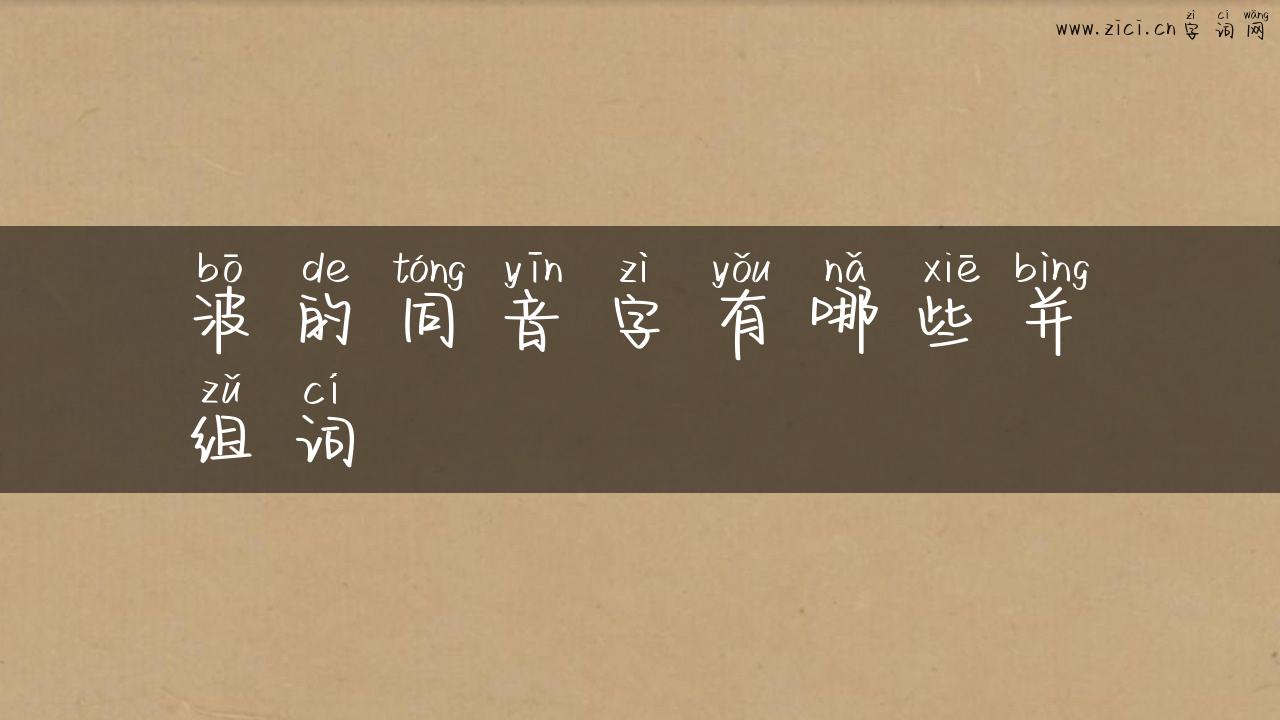 zì cí wǎng
www.zici.cn 字词网
bō de tóng yīn zì yǒu nǎ xiē bìng
波的同音字有哪些并
zǔ cí
组词